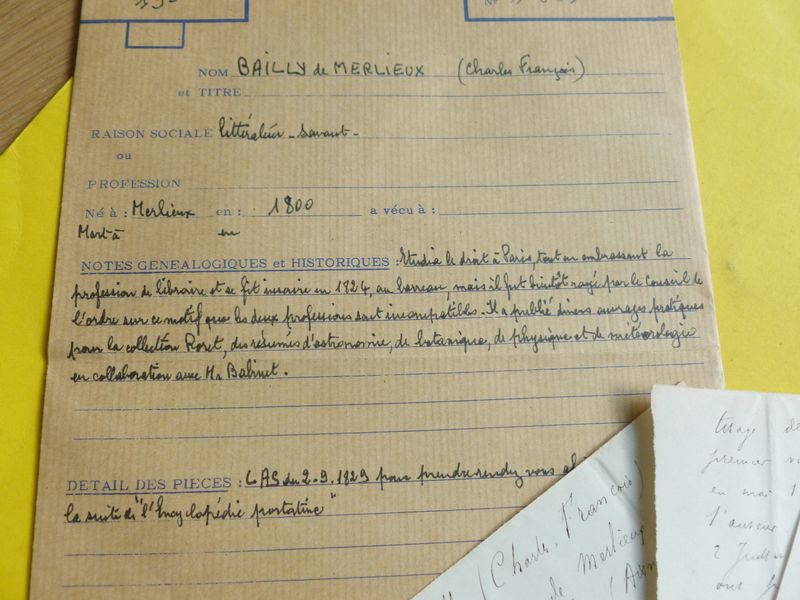 NOM BAILLY de MERLIEUX (Charles François)
et TITRE
RAISON SOCIALE littérateur - savant -
ou
PROFESSION
Né à : Merlieux en : 1800 a vécu à :
Mort à en
NOTES GENEALOGIQUES et HISTORIQUES : Etudia le droit à Paris, tout en embrassant la
profession de libraire et se fit inscrire en 1824, au barreau, mais il fut bientôt rayé par le Conseil de
l'ordre sur ce motif que les deux professions sont incompatibles. Il a publié divers ouvrages pratiques
pour la collection Roret, des résumés d'astronomie, de botanique, de physique et de météorologie
en collaboration avec Mr Babinet.
DETAIL DES PIECES : LAS du 2.9.1829 pour prendre rendez vous
la suite de "l'Encyclopédie portative"
(Charles, François)
de Merlieux
tirage de
premier
en mai 1
l'auteur
2 Juillet
ont